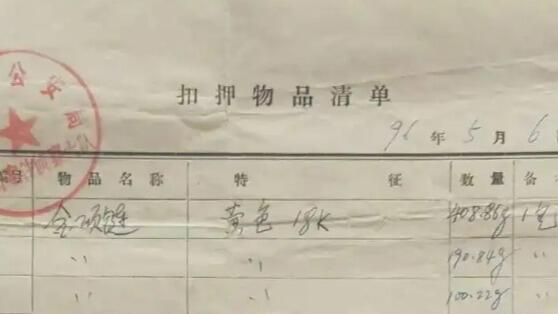 扣押物品清单
96年5月6
编号 物品名称 特征 数量 备
金项链 黄色 18K 408.86g 1包
〃 〃 190.84g 〃
〃 〃 100.22g 〃